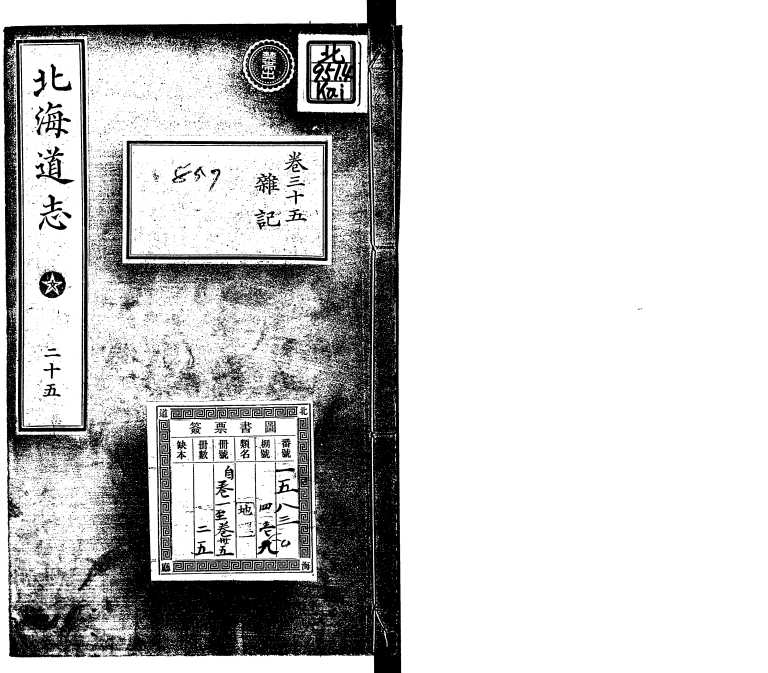 北海道志
二十五
北
951.4
Kai
卷三十五
雜記
北海道廳
圖書票簽
番號
棚號
類名
冊號
冊數
缺本
一五八三
四
地
自卷一至卷卅五
二五